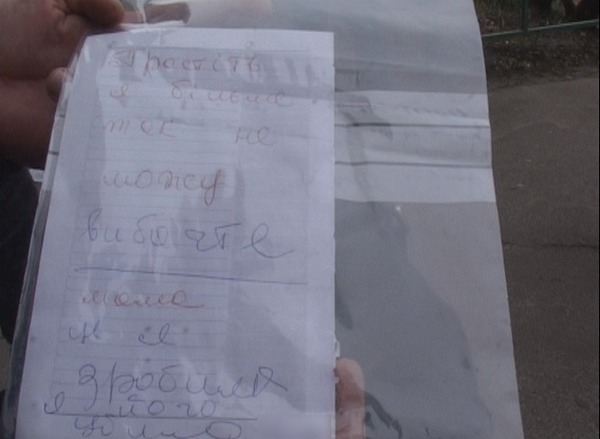 Простіть
я більше
так не
можу
вибачте
мама
це я
зробила
я його